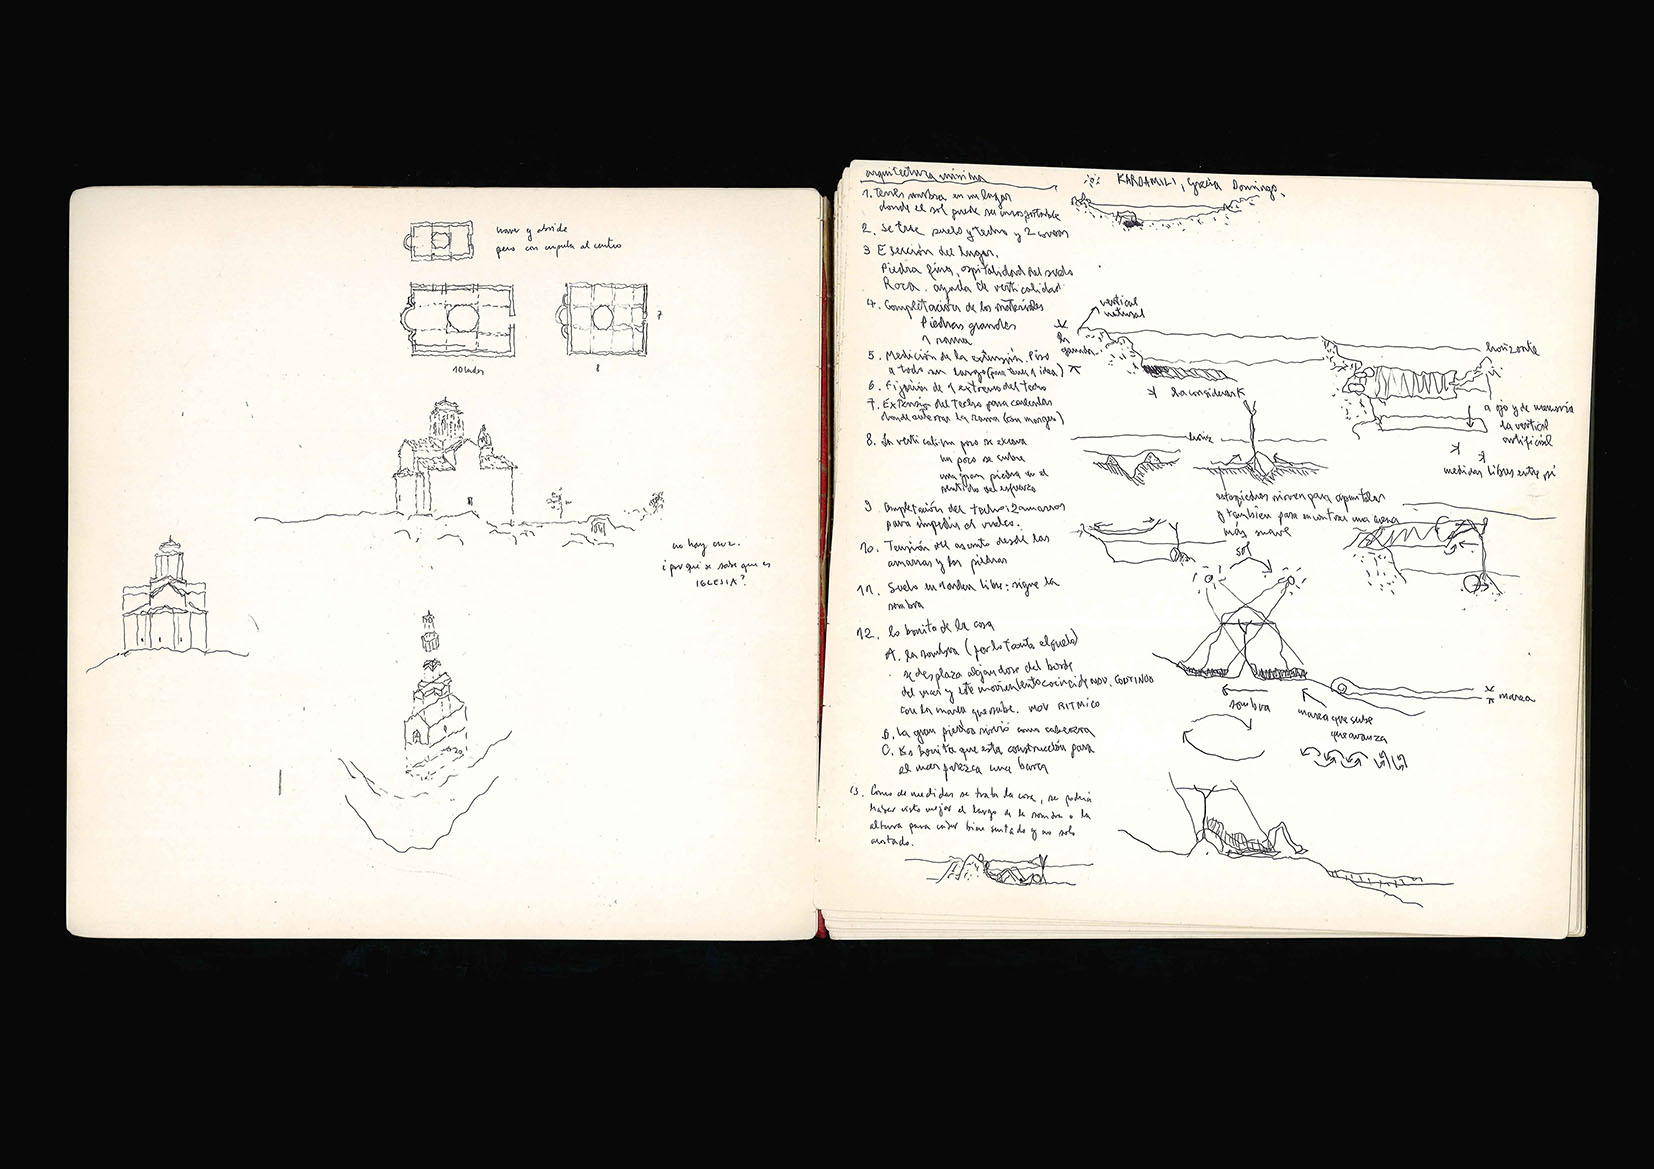 nave y ábside
pero con cúpula al centro
7
10 lados
8
no hay cruz.
¿por qué se sabe que es
IGLESIA?
arquitectura mínima
KARDAMILI, Grecia Domingo.
1. Tener sombra en un lugar
donde el sol puede ser insoportable
2. Se trae suelo y techo y 2
3 Elección del lugar.
Piedra fina, ospitalidad del suelo
Roca. ayuda de verticalidad
4. Completación de los materiales
Piedras grandes
1 rama
5. Medición de la extensión. Piso
a todo su largo (para tener 1 idea)
6. Fijación de 1 extremo del techo
7. Extensión del techo para calcular
donde enterrar la rama (con margen)
8. La vertical: un pozo se excava
un pozo se cubre
una gran piedra en el
sentido del esfuerzo
9. Completación del techo: 2 amarras
para impedir el vuelco.
10. Tensión del asunto desde las
amarras y las piedras
11. Suelo en orden libre: sigue la
sombra
12. Lo bonito de la cosa
A. la sombra (por lo tanto el suelo)
se desplaza alejándose del borde
del mar y este movimiento coincide MOV. CONTINUO
con la marea que sube. MOV RITMICO
B. La gran piedra sirvió como cabecera
C. Es bonito que esta construcción para
el mar parezca una barca
13. Como de medidas se trata la cosa, se podría
haber visto mejor el largo de la sombra o la
altura para caber bien sentado y no solo
acostado.
vertical
natural
la
ganada
horizonte
la considerar
a ojo y de memoria
la vertical
artificial
medidas libres entre sí
horiz
estas piedras sirven para apuntalar
y también para encontrar una arena
más suave
sol
sombra
marea que sube
que avanza
marea